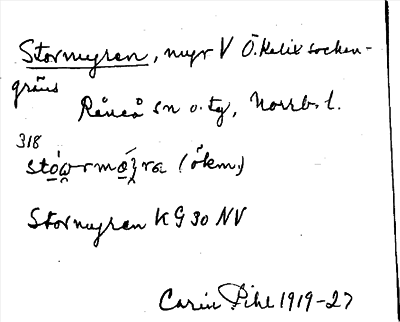 Stormyren, myr V Ö. Kalix socken-
gräns
Råneå sn o. tg, Norrb. l.
318
(ökn.)
Stormyren KG 30 NV
Carin Pihl 1919-27